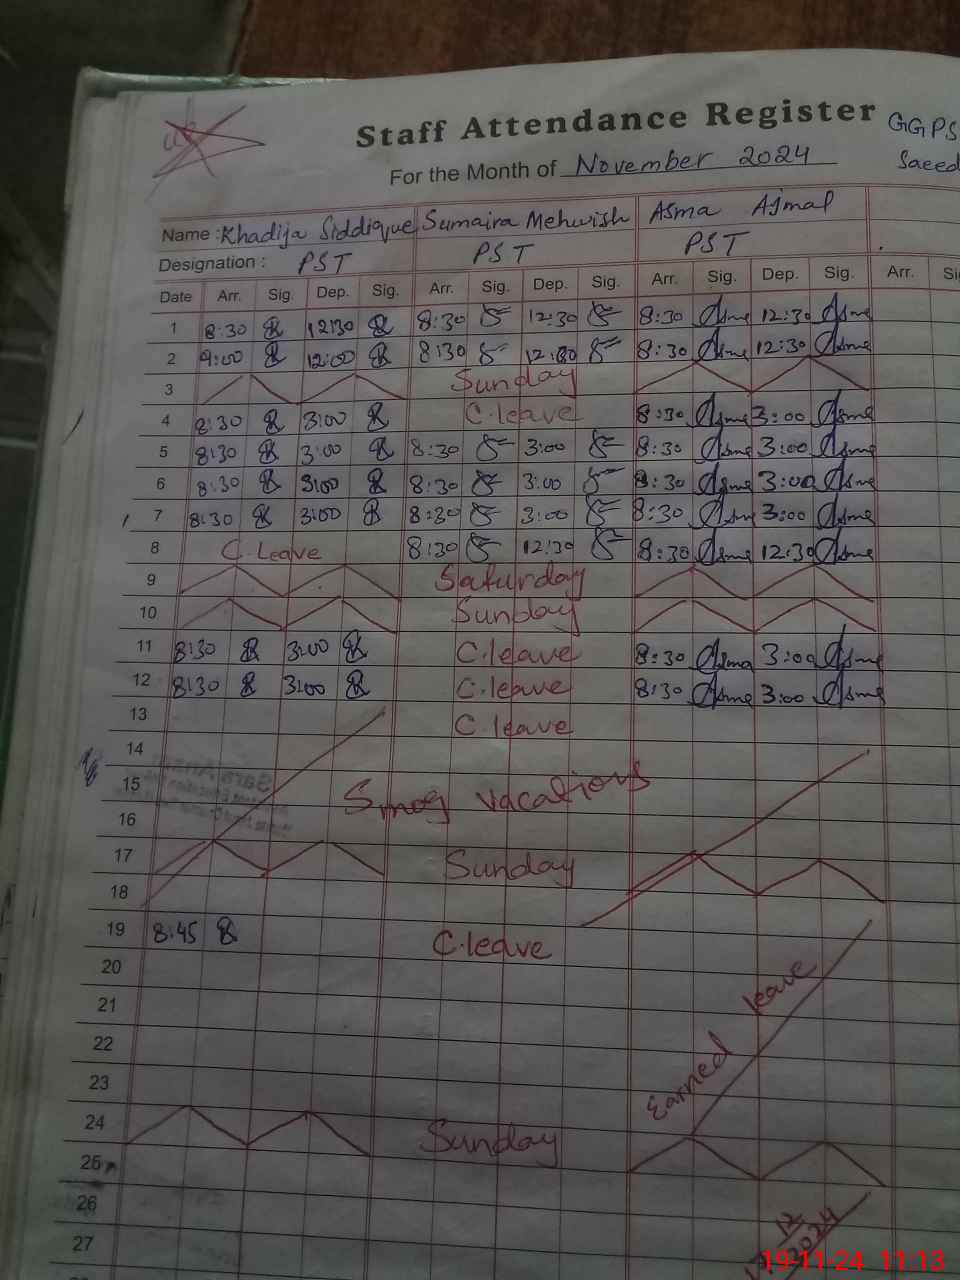 Staff Attendance Register
GGPS
For the Month of November 2024
Saeed
Name : Khadija Siddique Sumaira Mehwish Asma Ajmal
Designation : PST PST PST
Date Arr. Sig. Dep. Sig. Arr. Sig. Dep. Sig. Arr. Sig. Dep. Sig. Arr.
1 8:30 12:30 8:30 12:30 8:30 Asma 12:30 Asma
2 9:00 12:00 8:30 12:30 8:30 Asma 12:30 Asma
3 Sunday
4 8:30 3:00 C.leave 8:30 Asma 3:00 Asma
5 8:30 3:00 8:30 3:00 8:30 Asma 3:00 Asma
6 8:30 3:00 8:30 3:00 8:30 Asma 3:00 Asma
7 8:30 3:00 8:30 3:00 8:30 Asma 3:00 Asma
8 C.Leave 8:30 12:30 8:30 Asma 12:30 Asma
9 Saturday
10 Sunday
11 8:30 3:00 C.leave 8:30 Asma 3:00 Asma
12 8:30 3:00 C.leave 8:30 Asma 3:00 Asma
13 C.leave
14
15 Smog vacations
16
17 Sunday
18
19 8:45 C.leave
20
21 Earned leave
22
23
24 Sunday
25
26
27
12
2024
19-11-24 11:13